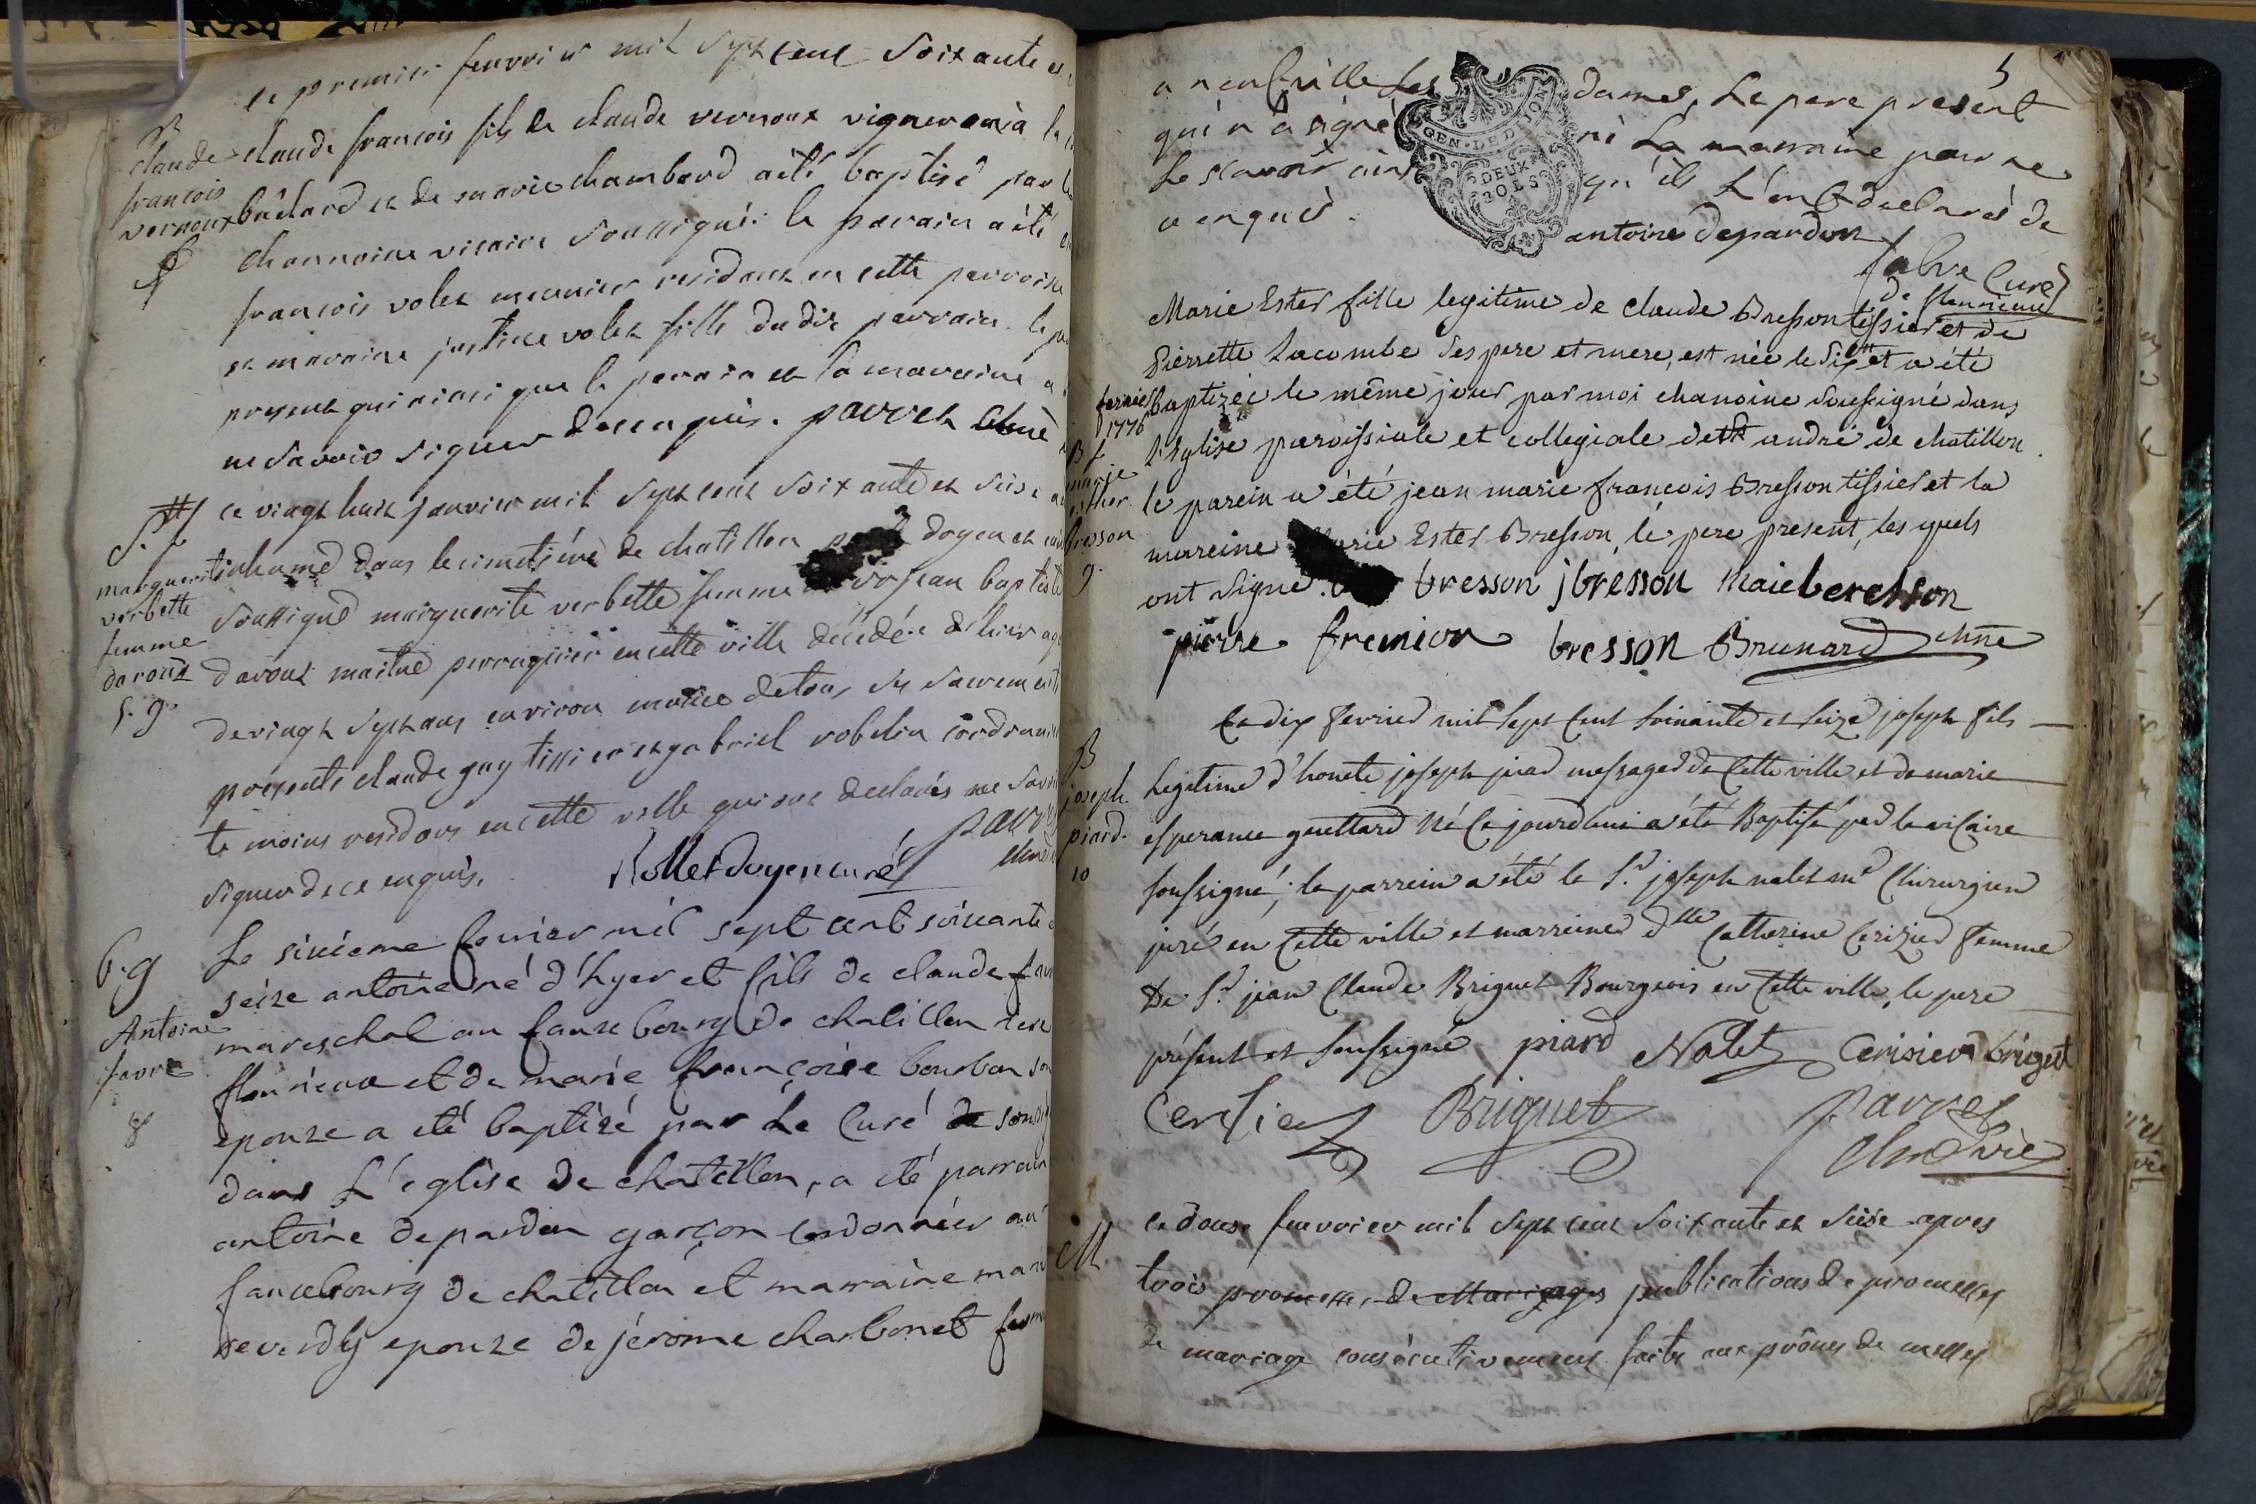 ce premier fevvrier mil sept cent soixante et
B
claude
francois
vernoux
claude francois fils de claude vernoux vigneron à la
bachard et de marie chambard a été baptisé par le
channoine vicaire soussigné: le parain a été
francois volet meunier residant en cette parroisse
et maraine justine volet fille du dit parrain. le
present qui ainsi que le parain et la maraine
ne savoir signer de ce enquis. parret chne
S.
marguerite
verbette
femme
daroux
5. g.
ce vingt huit janvier mil sept cent soixante et seise a
inhumé dans le cimetiere de chatillon doyen et
soussigné marguerite verbette femme jean baptiste
daroux maitre perruquier en cette ville décédée d'hier agé
de vingt sept ans environ munie de tous ses sacrements
presents claude guy tissier et gabriel robelin cordonnier
temoins residans en cette ville qui ont declarés ne savoir
signer de ce enquis. Rollet doyen curé parret
chne
b.g
Antoine
favre
8
Le sixieme fevrier mil sept cent soixante
seize antoine né d'hyer et fils de claude
mareschal au fauxbourg de chatillon
fleurieux et de marie françoise bourbon son
epouze a eté baptizé par Le Curé de
dans L'eglise de chatillon, a eté parrain
antoine depardon garçon cordonnier au
fauxbourg de chatillon et marraine marie
reverdy epouze de jérome charbonet
5
a neufville les dames, Le pere present
qui n'a signé ni La marraine pour ne
Le scavoir ains qu'ils L'ont declarés de
ce enquis.
GEN. DE DIJON
DEUX
SOLS
antoine depardon
fabvre Curé
de fleurieux
fevrier
1776
B
marie
esther
bresson
9.
Marie Ester fille legitime de claude Bresson tissier et de
Pierrette Lacombe ses pere et mere, est née le six et a été
baptizée le même jour par moi chanoine soussigné dans
L'Eglise paroissiale et collegiale de st andré de chatillon.
le parein a été jean marie francois Bresson tissier et la
mareine Marie Ester Bresson, le pere present, les quels
ont signé. bresson jbresson Maie beresson
pierre fremion bresson Brunard chne
B
joseph
piard.
10
Le dix fevrier mil sept cent soixante et seize joseph fils
legitime d'honete joseph piard messager de cette ville et de marie
esperance guettard né ce jourdhui a été Baptisé par le vicaire
soussigné; le parrein a été le Sr. joseph nalet md Chirurgien
juré en cette ville et marreine dlle Catherine Cerizier femme
de Sr. jean Claude Briguet Bourgeois en cette ville, le pere
présent et soussigné piard Nalet Cerisier briguet
Cerisier Briguet parret
chne vic
M.
ce douse fevvrier mil sept cent soixante et seise apres
trois promesses de Mariages publications de promesses
de mariage consécutivement faites aux prônes de messes